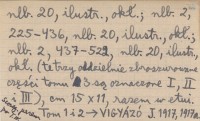 nlb. 20, ilustr., okł.; nlb. 2,
225-436, nlb. 20, ilustr., okł.;
nlb. 2, 437-522, nlb. 20, ilustr.,
okł. (tetraz oddzielnie zbroszurowane
części tomu 3 są oznaczone I, II
i III), cm 15 x 11, razem w etui.
Tom 1 i 2 → VIGYÁZÓ J. 1917, 1917a.